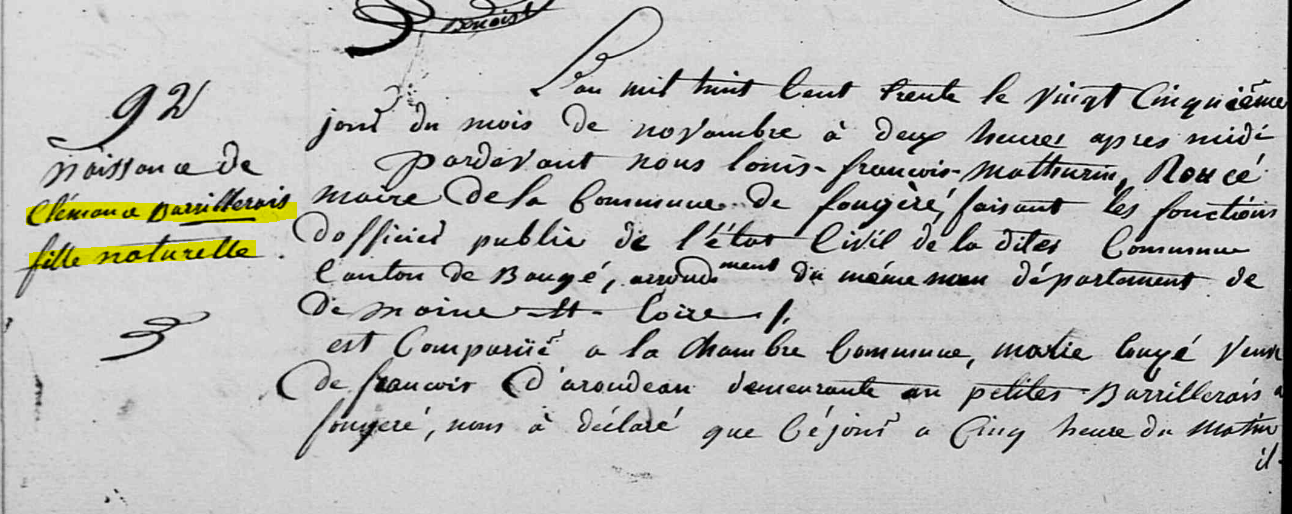 Benoist
92
Naissance de
Clémence Barrillerais
fille naturelle.
L'an mil huit Cent trente le vingt Cinquième
jour du mois de novembre à deux heures apres midi
pardevant nous louis-françois-mathurin, Roucé
maire de la Commune de fougèré, faisant les fonctions
dofficier public de l'état Civil de la dites Commune
Canton de Baugé, arrondment du même nom département de
de maine et Loire /.
est Comparüe a la Chambre Commune, marie veuve
De françois D'arondeau demeurante au petites-Barrillerais a
fougeré, nous à déclaré que Céjour a Cinq heure du matin
il-